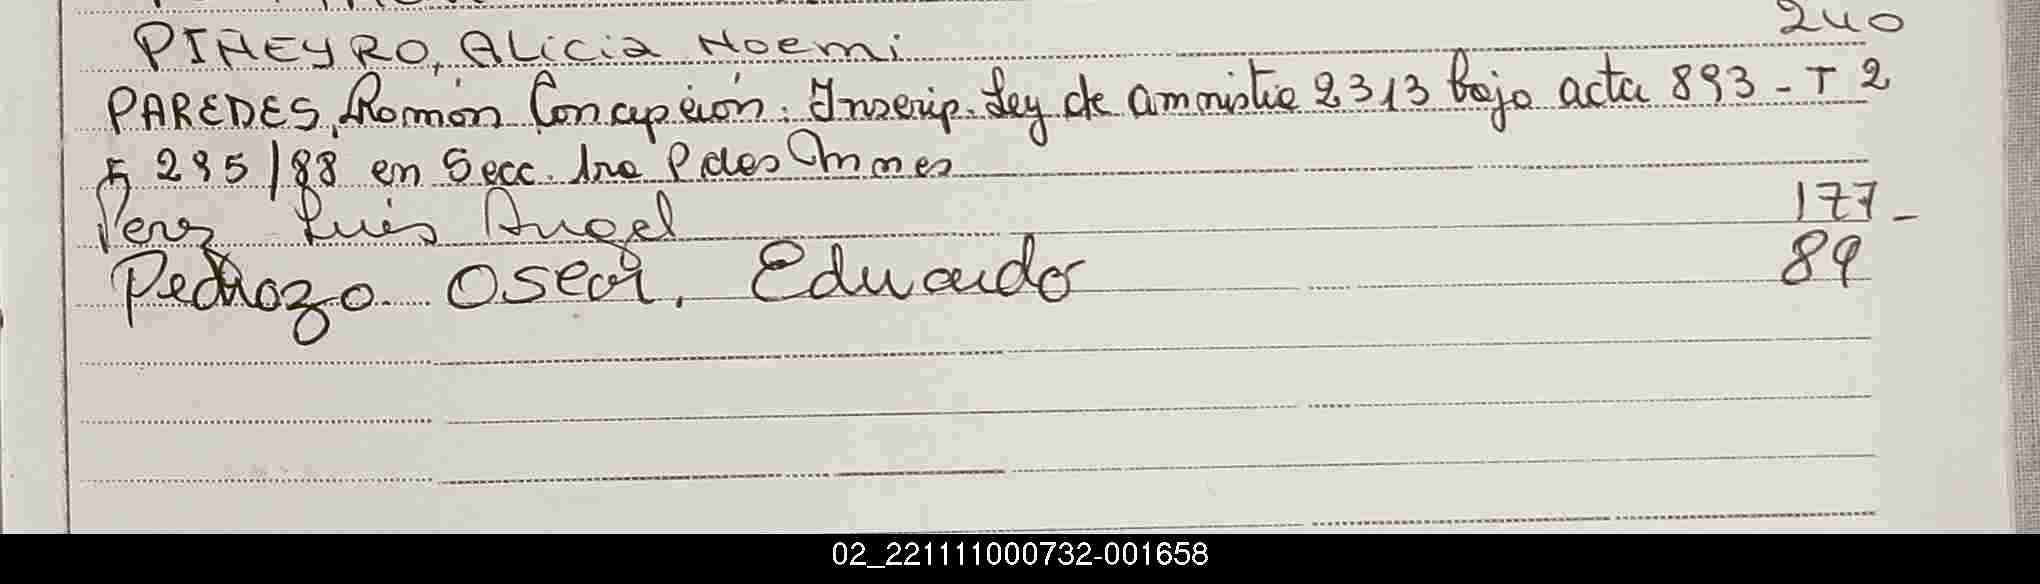 PIÑEYRO, ALiciA Noemi 240
PAREDES, Román Concepción. Inscrip. Ley de amnistia 2313 bajo acta 893 - T 2
F 295/88 en Secc. 1ra P de los
Perez Luis Angel 177-
Pedrozo Oscar, Eduardo 89
02_221111000732-001658